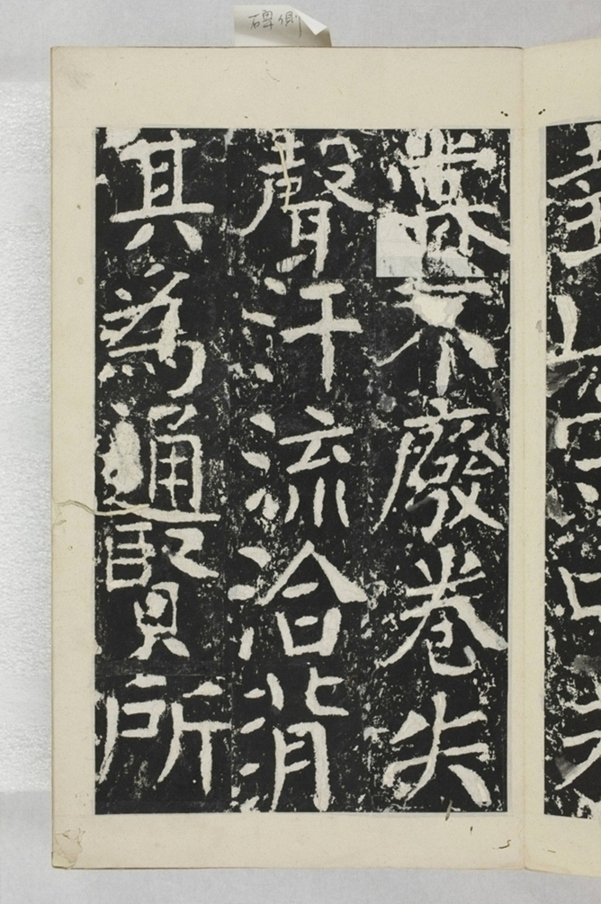 碑側
不廢卷失
聲汗流洽背
其為通賢所